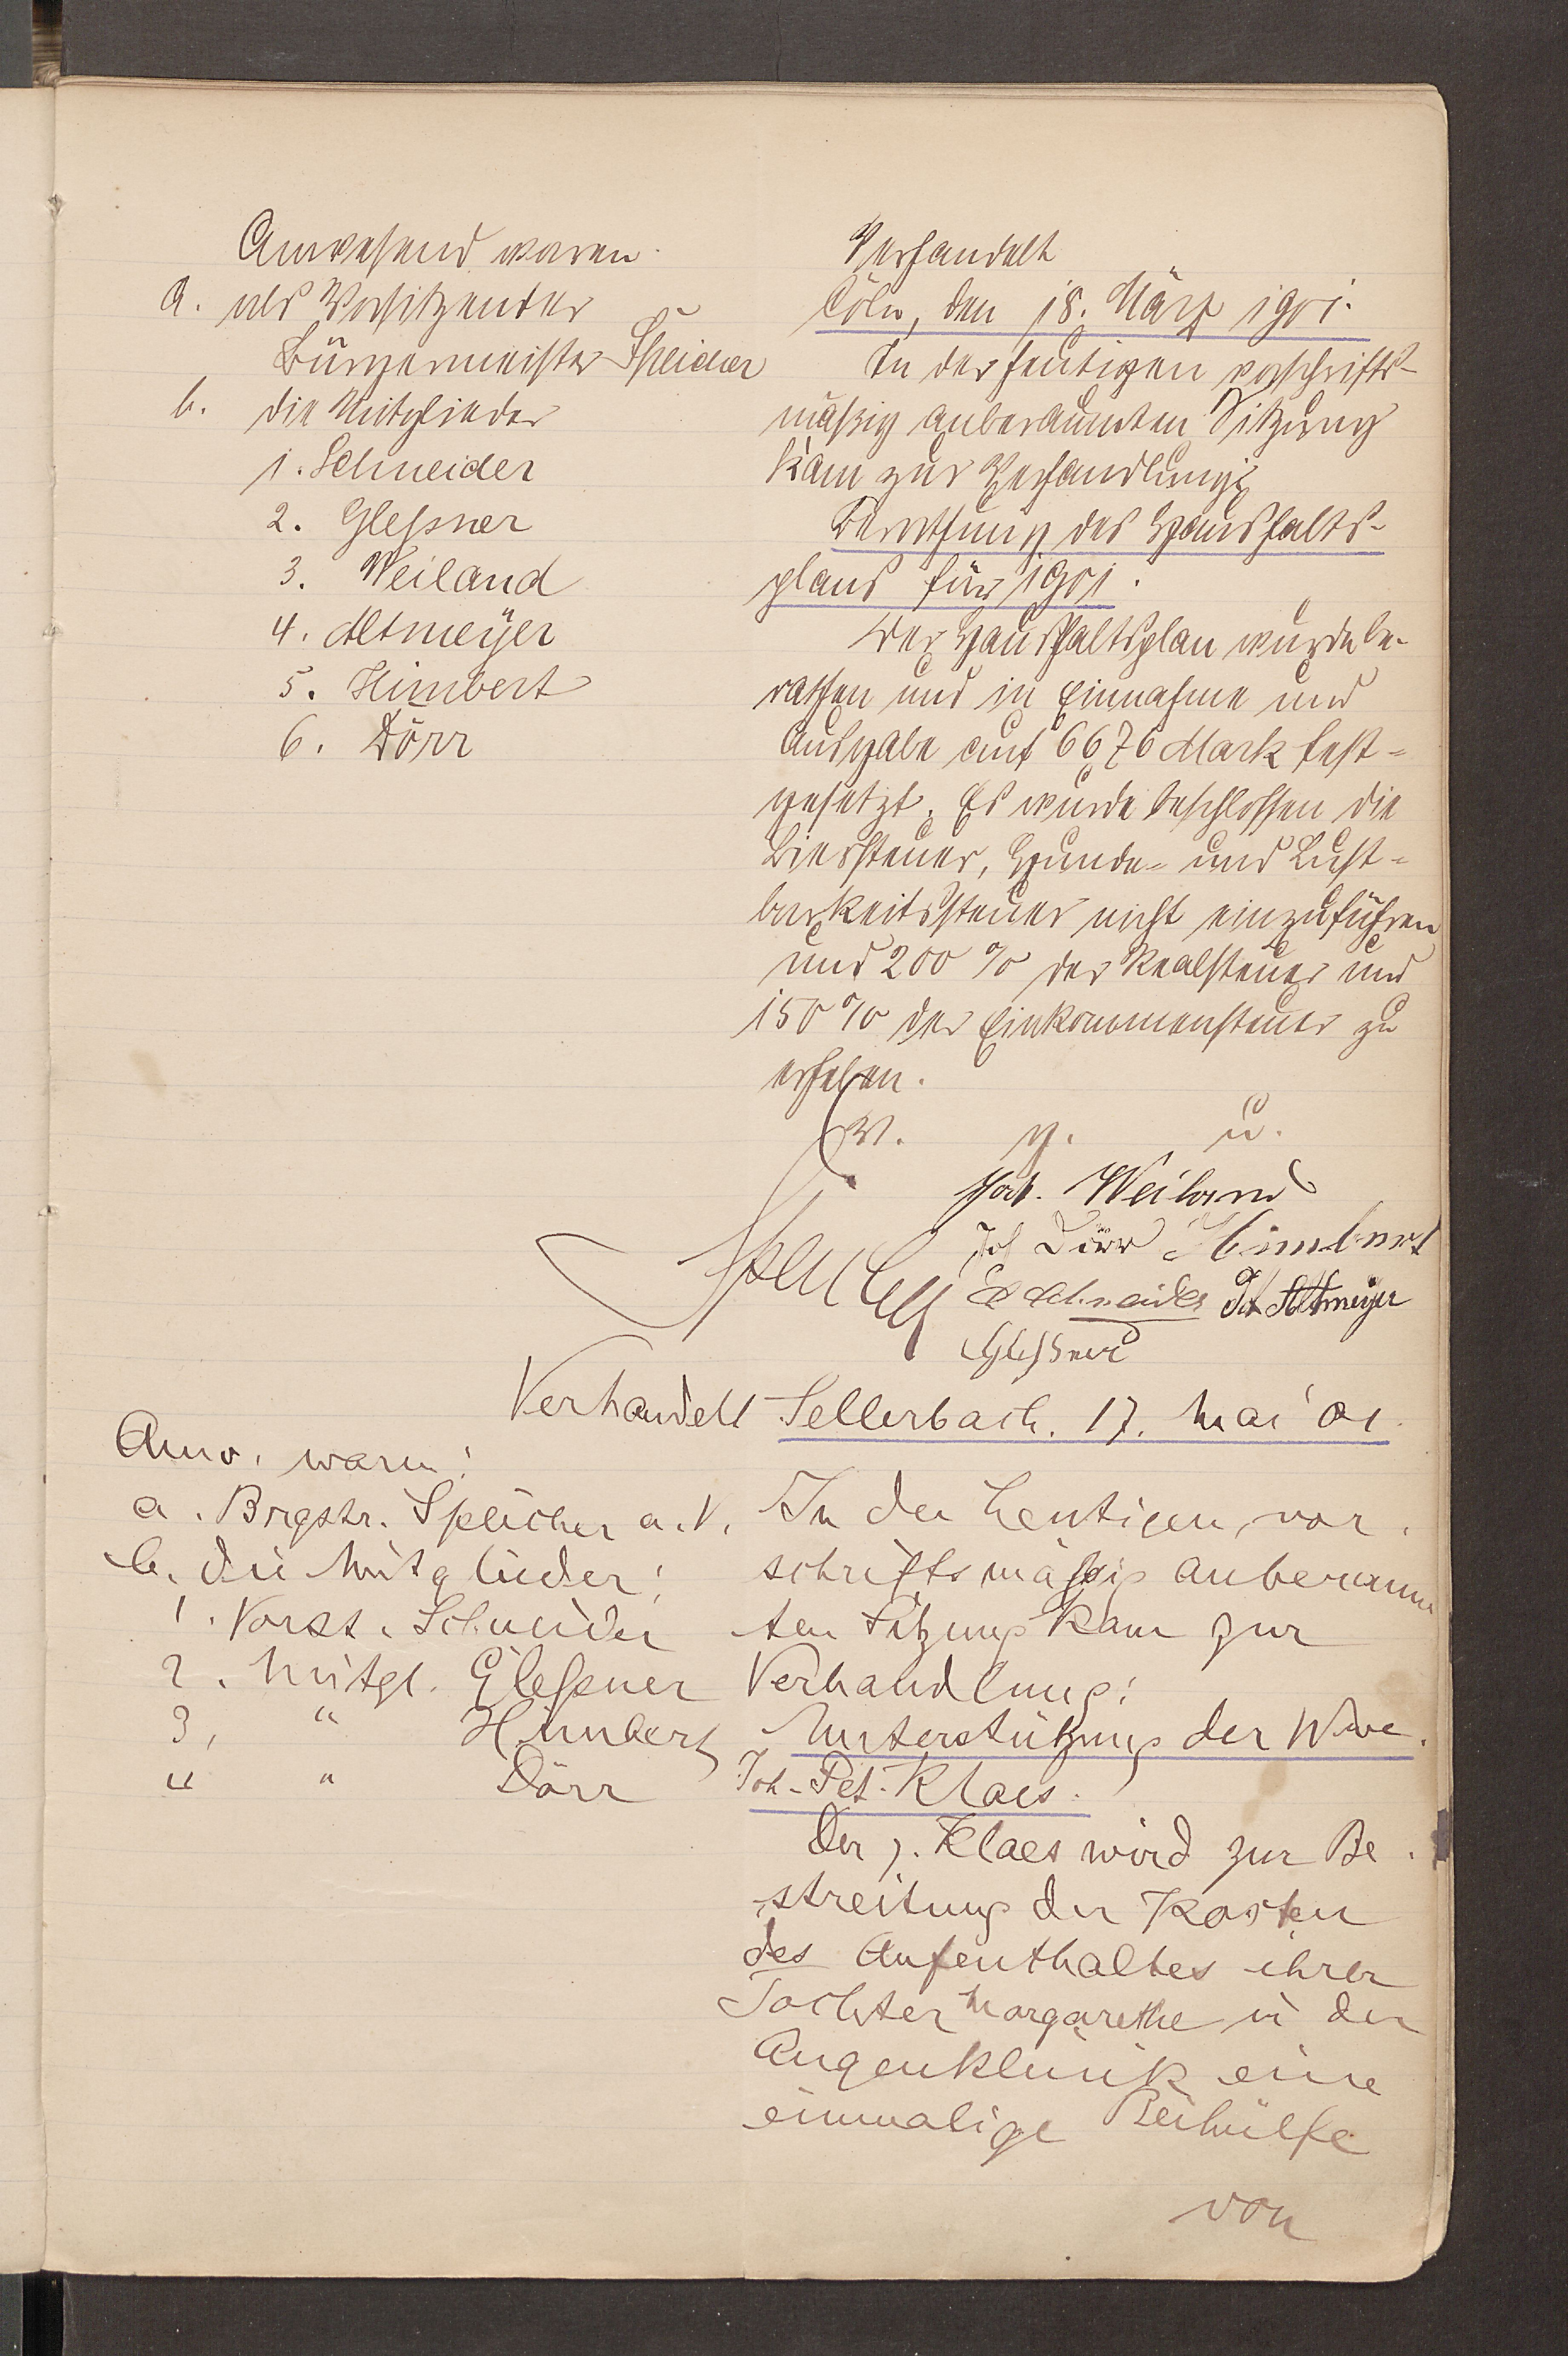 Anwesend waren
a. als Vorsitzender
Bürgermeister Speicher
b. die Mitglieder
1. Schneider
2. Gleßner
3. Weiland
4. Altmeÿer
5. Himbert
6. Dörr
Verhandelt
Cöln, den 18. März 1901.
In der heutigen vorschrifts-
mäßig anberaumten Sitzung
kam zur Verhandlung:
Berathung des Haushalts-
plans für 1901.
Der Haushaltsplan wurde be-
rathen und in Einnahme und
Ausgabe auf 6676 Mark fest-
gesetzt. Es wurde beschlossen die
Biersteuer, Hunde- und Lust-
barkeitssteuer nicht einzuführen
und 200 % der Realsteuer und
150 % der Einkommensteuer zu
erheben.
v. g. u.
Weiland
Joh Dörr Himbert
Speicher Schneider Altmeyer
Gleßner
Verhandelt Sellerbach. 17. Mai 01.
Anw. waren:
a. Brgstr. Speicher a. V.
b. die Mitglieder:
1. Vorst. Schneider
2. Mitgl. Gleßner
3, " Himbert
4 " Dörr
In der heutigen, vor-
schriftsmäßig anberaum
ten Sitzung kam zur
Verhandlung:
Unterstützung der Wwe.
Joh. Pet. Klaes.
Der p. Klaes wird zur Be-
streitung der Kosten
des Aufenthaltes ihrer
Tochter Margarethe in der
Augenklinik eine
einmalige Beihülfe
von